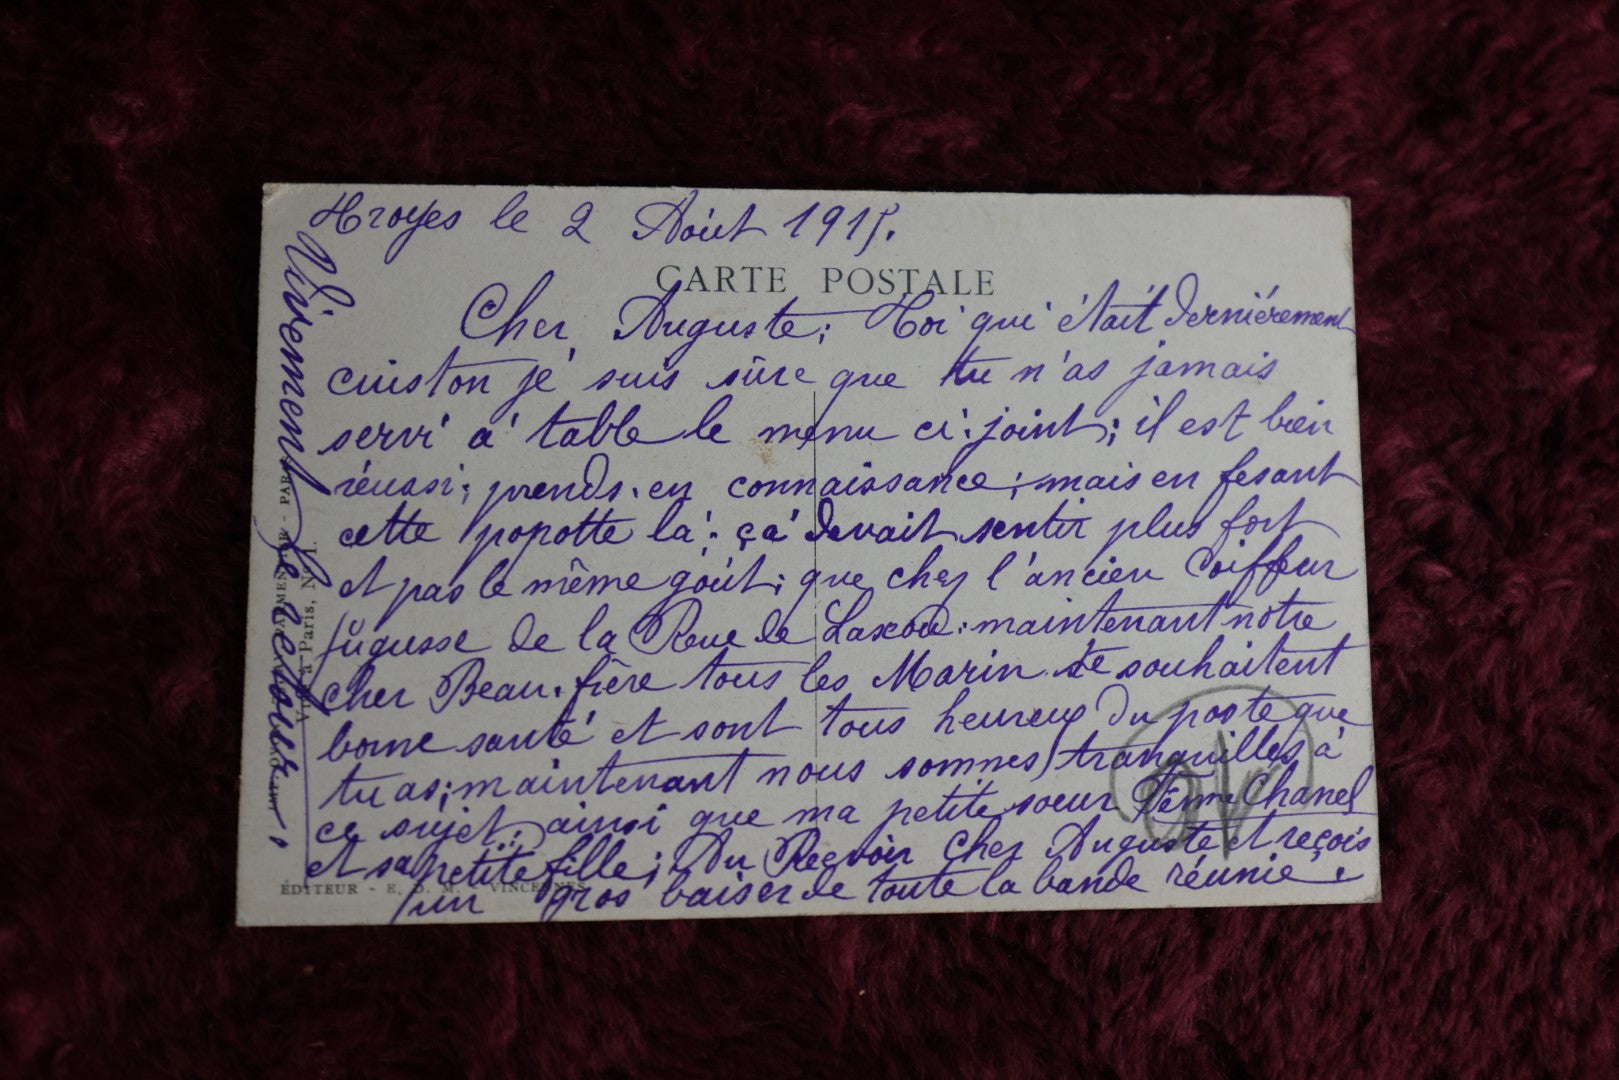 Troyes le 2 Août 1915.
CARTE POSTALE
Cher Auguste; Toi qui était dernièrement
cuiston je suis sûre que tu n'as jamais
servi à table le menu ci-joint; il est bien
réussi; prends-en connaissance; mais en fesant
cette popotte là; ça devait sentir plus fort
et pas le même goût; que chez l'ancien Coiffeur
de la Rue de Laxou. maintenant notre
cher Beau-frère tous les Marin te souhaitent
bonne santé et sont tous heureux du poste que
tu as; maintenant nous sommes tranquilles à
ce sujet; ainsi que ma petite soeur Chanel
et sa petite fille; Au Revoir Cher Auguste et reçois
un gros baiser de toute la bande réunie.
Vivement le retour!
Visé à Paris, No 1.
ÉDITEUR - E. D. M. - VINCENNES